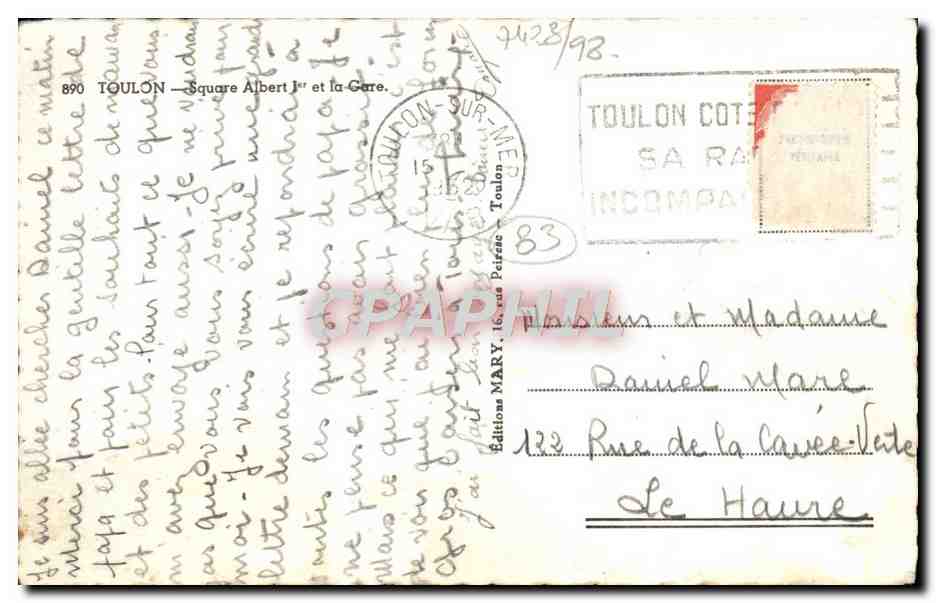 7428/98.
890 TOULON — Square Albert Ier et la Gare.
TOULON-SUR-MER
TOULON COTE
SA RA
INCOMPA
83
CPAPHIL
Éditions MARY, 16, rue Peiresc - Toulon
Monsieur et Madame
Daniel Mare
122 Rue de la Cavée-Verte
Le Havre
Je suis allée chercher Daniel ce matin
Merci pour la gentille lettre de
papa et pour les souhaits de maman
et des petits. Pour tout ce que vous
m'avez envoyé aussi. Je ne voudrais
pas que vous vous soyez privé pour
moi - Je vous écrirai une grande
lettre demain et je répondrai à
toutes les questions de papa. Je
ne pense pas avoir grossi
Mais ce qui me fait plaisir c'est
de voir que tout va bien
Gros baisers à tous
J'ai fait bon voyage